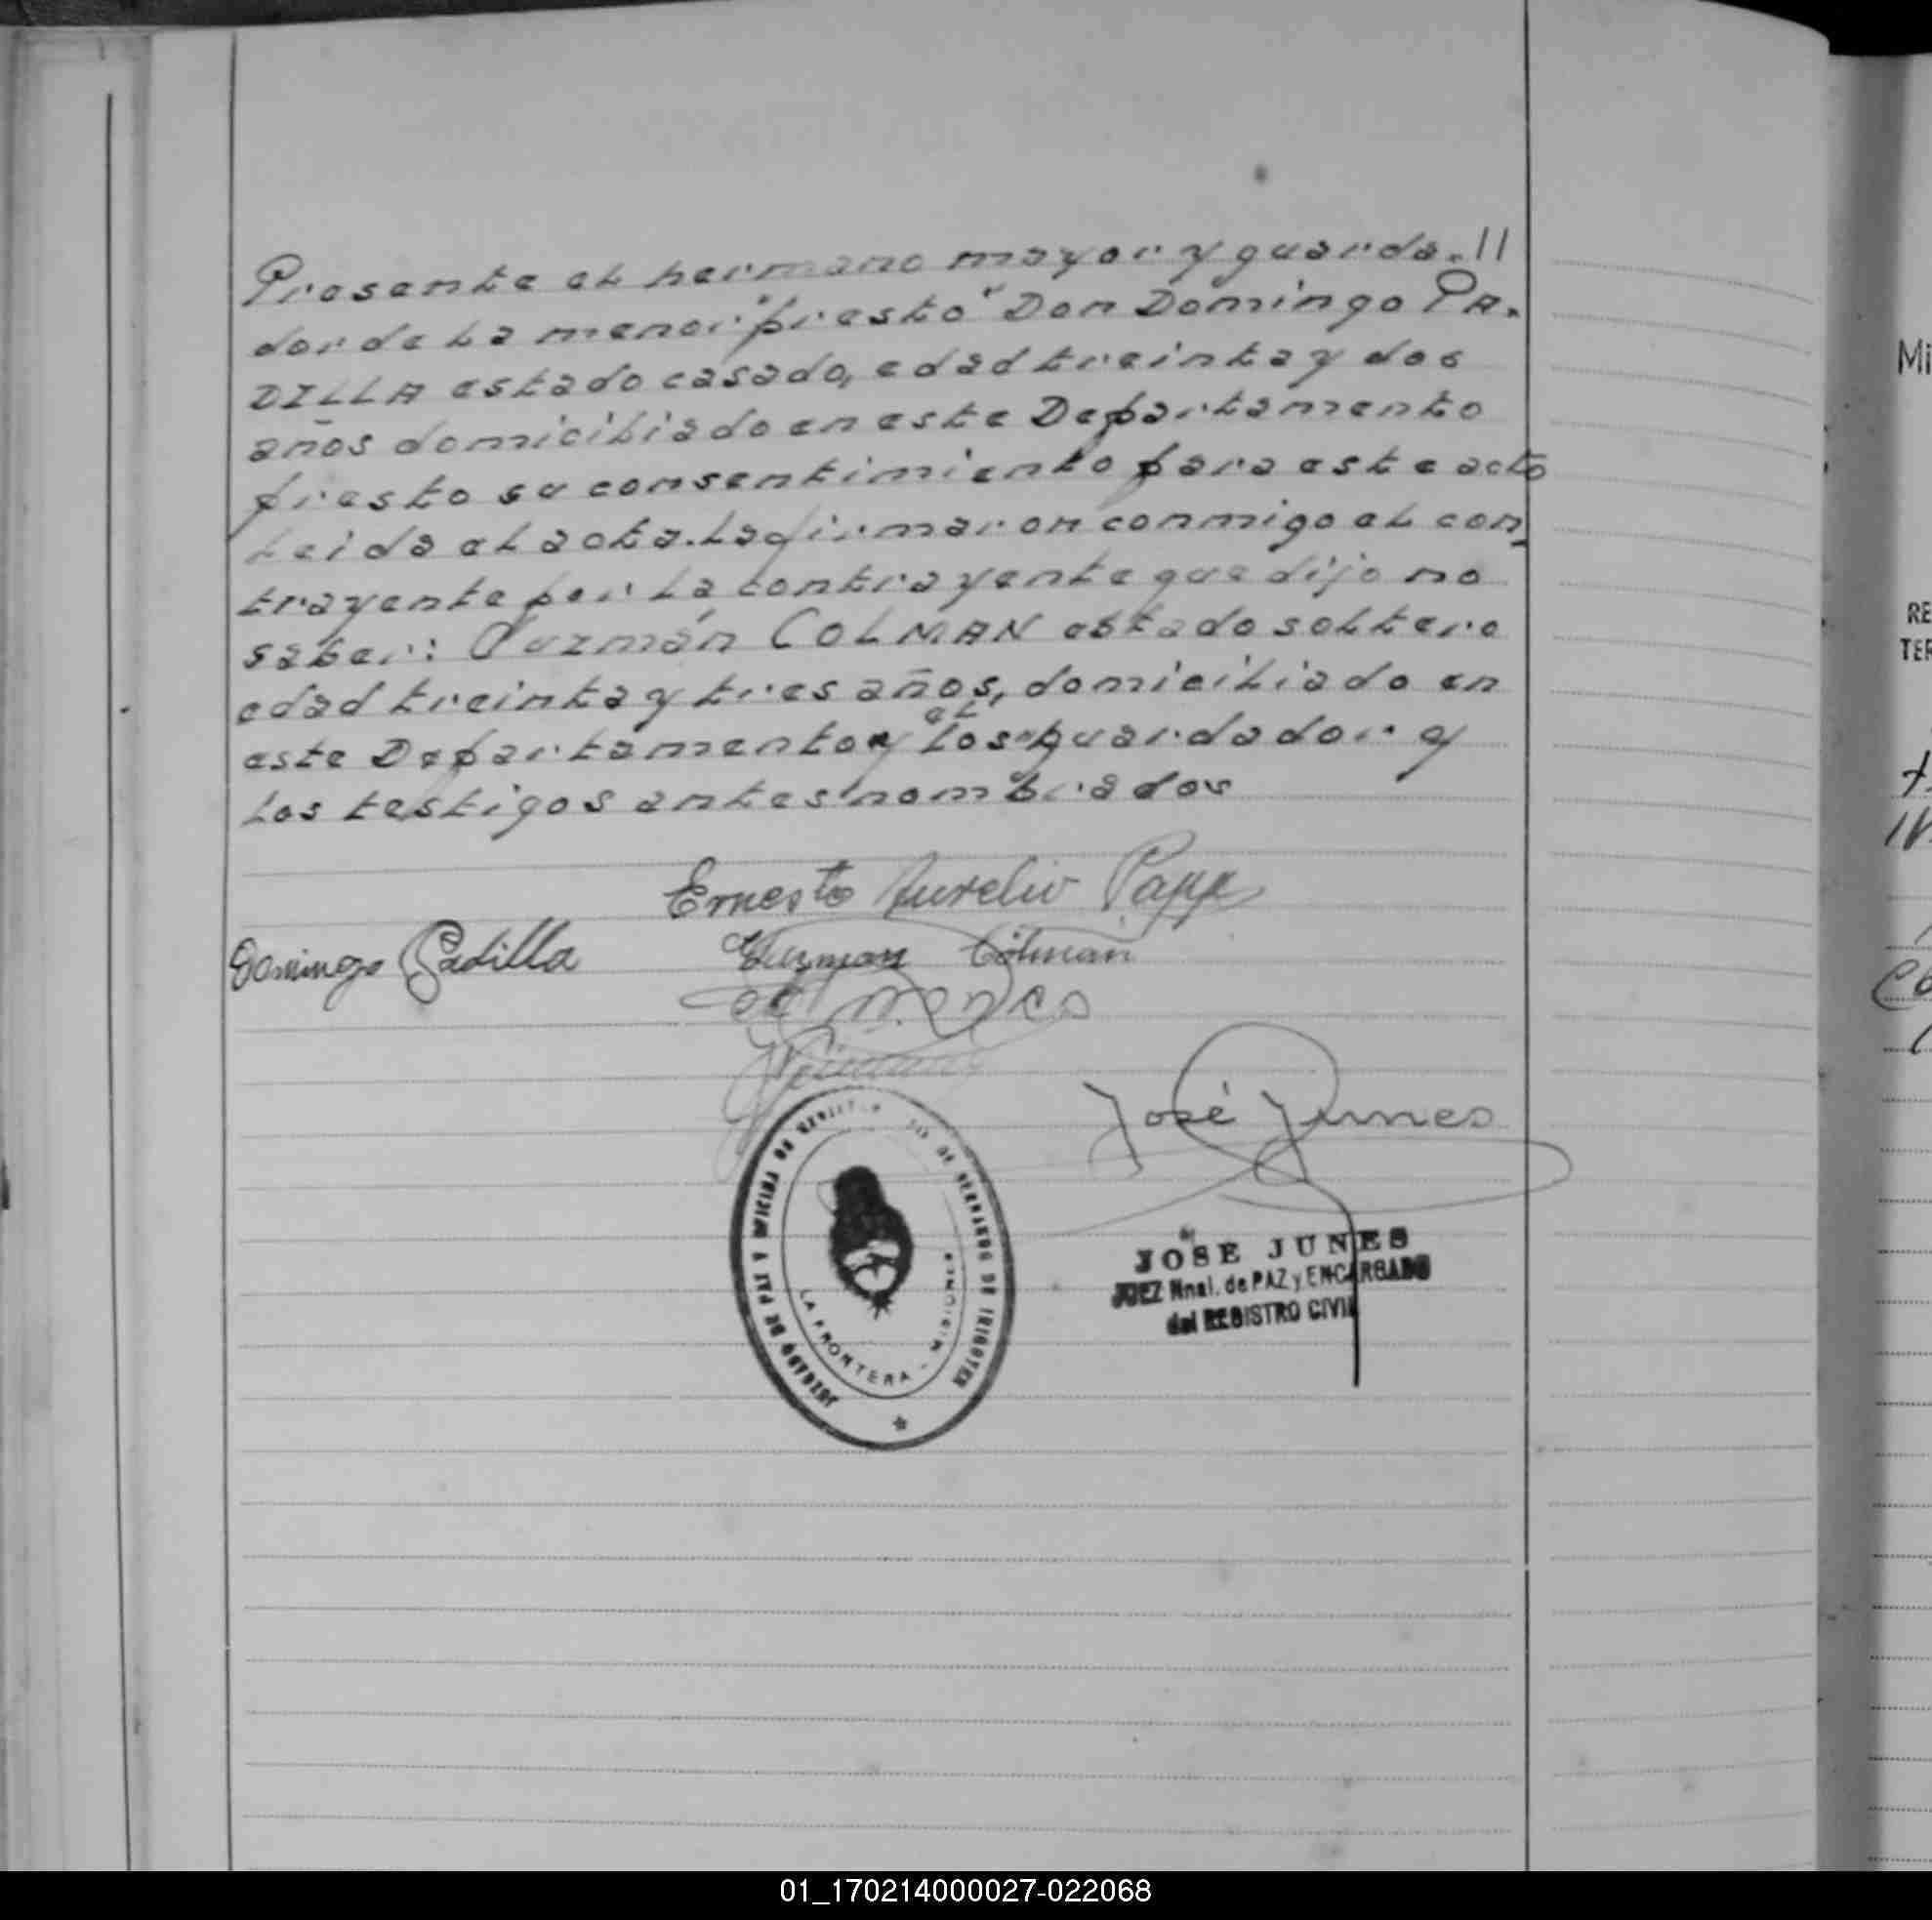 Presente el hermano mayor y guarda- //
dor de la menor "presto" Don Domingo PA-
DILLA estado casado, edad treinta y dos
años domiciliado en este Departamento
presto su consentimiento para este acto
Leida el acta. La firmaron conmigo el con-
trayente por la contrayente que dijo no
saber: Guzmán COLMAN estado soltero
edad treinta y tres años, domiciliado en
el
este Departamento y los guardador y
los testigos antes nombrados
Ernesto Aurelio Papp
Domingo Padilla
Guzman Colman
José Junes
JUZGADO DE PAZ Y OFICINA DE REGISTRO DE BERNARDO DE IRIGOYEN
LA FRONTERA - MISIONES
JOSE JUNES
JUEZ Nnal. de PAZ y ENCARGADO
del REGISTRO CIVIL
Mi
RE
TER
01_170214000027-022068